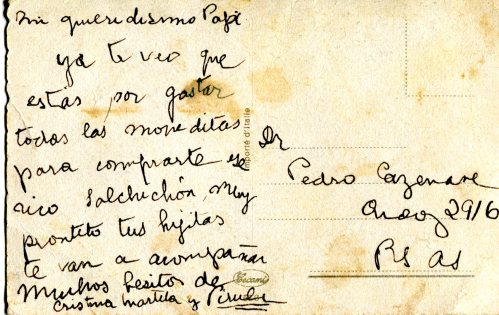 Mi queridisimo Papá
ya te veo que
estás por gastar
todas las moneditas
para comprarte ese
rico salchichón, muy
prontito tus hijitas
te van a acompañar
Muchos besitos de
Cristina Martita y
Importé d'Italie
Dr
Pedro Cazenave
29/6
Bs As